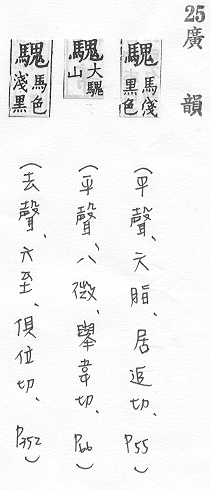 25
廣韻
騩 馬淺黑色
(平聲、六脂、居追切、P55)
騩 大騩山
(平聲、八微、舉韋切、P66)
騩 馬色淺黑
(去聲、六至、俱位切、P352)